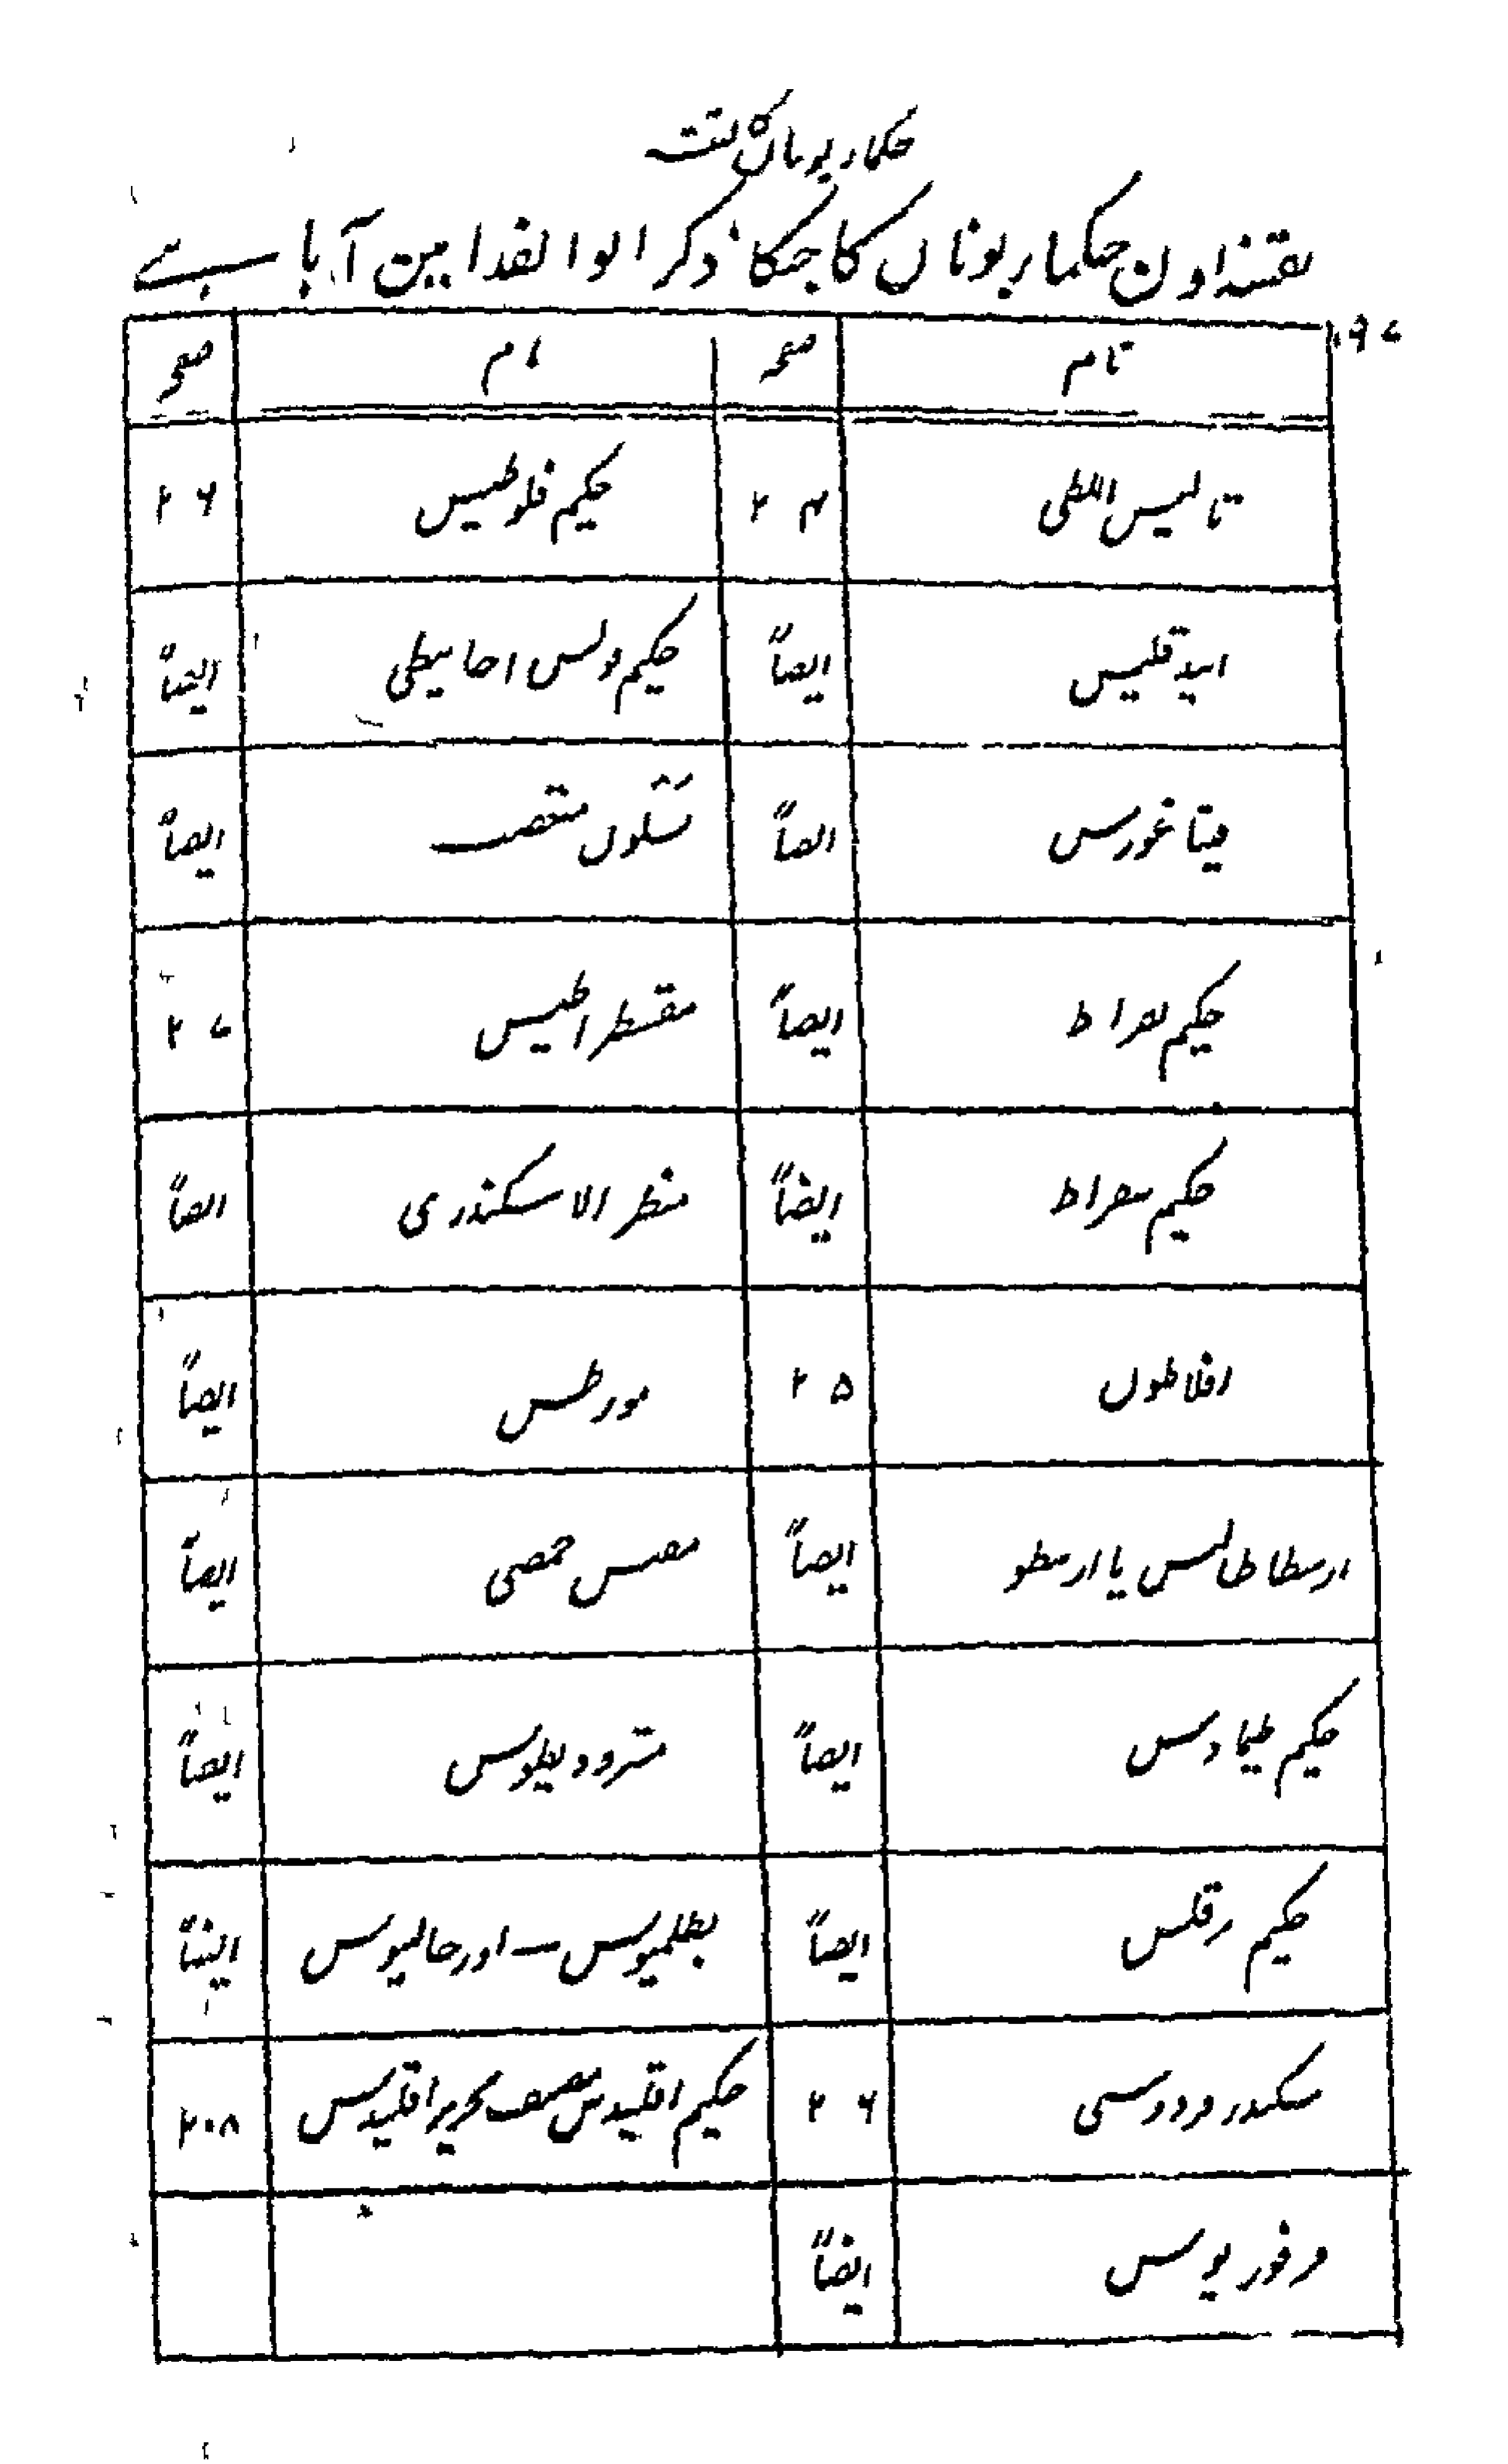 حکماء یونان کا نقشہ
نقشہ اون حکماء یونان کا جنکا ذکر ابوالفدا مین آیا ہے
نام صفحہ نام صفحہ
تالیس الملطی ۲۴ حکیم فلوطیس ۲۶
ابیدقلیس ایضاً حکیم فولس ایضاً
فیثاغورس ایضاً ایضاً
حکیم بقراط ایضاً مقسطراطیس ۲۷
حکیم سقراط ایضاً منظر الاسکندری ایضاً
افلاطون ۲۵ مورطس ایضاً
ارسطاطالیس یا ارسطو ایضاً حمصی ایضاً
حکیم طیماوس ایضاً مثرودیطوس ایضاً
حکیم برقلس ایضاً بطلمیوس – اور جالینوس ایضاً
سکندر فردوسی ۲۶ حکیم اقلیدس مصنف تحریر اقلیدس ۲۰۸
فرفوریوس ایضاً